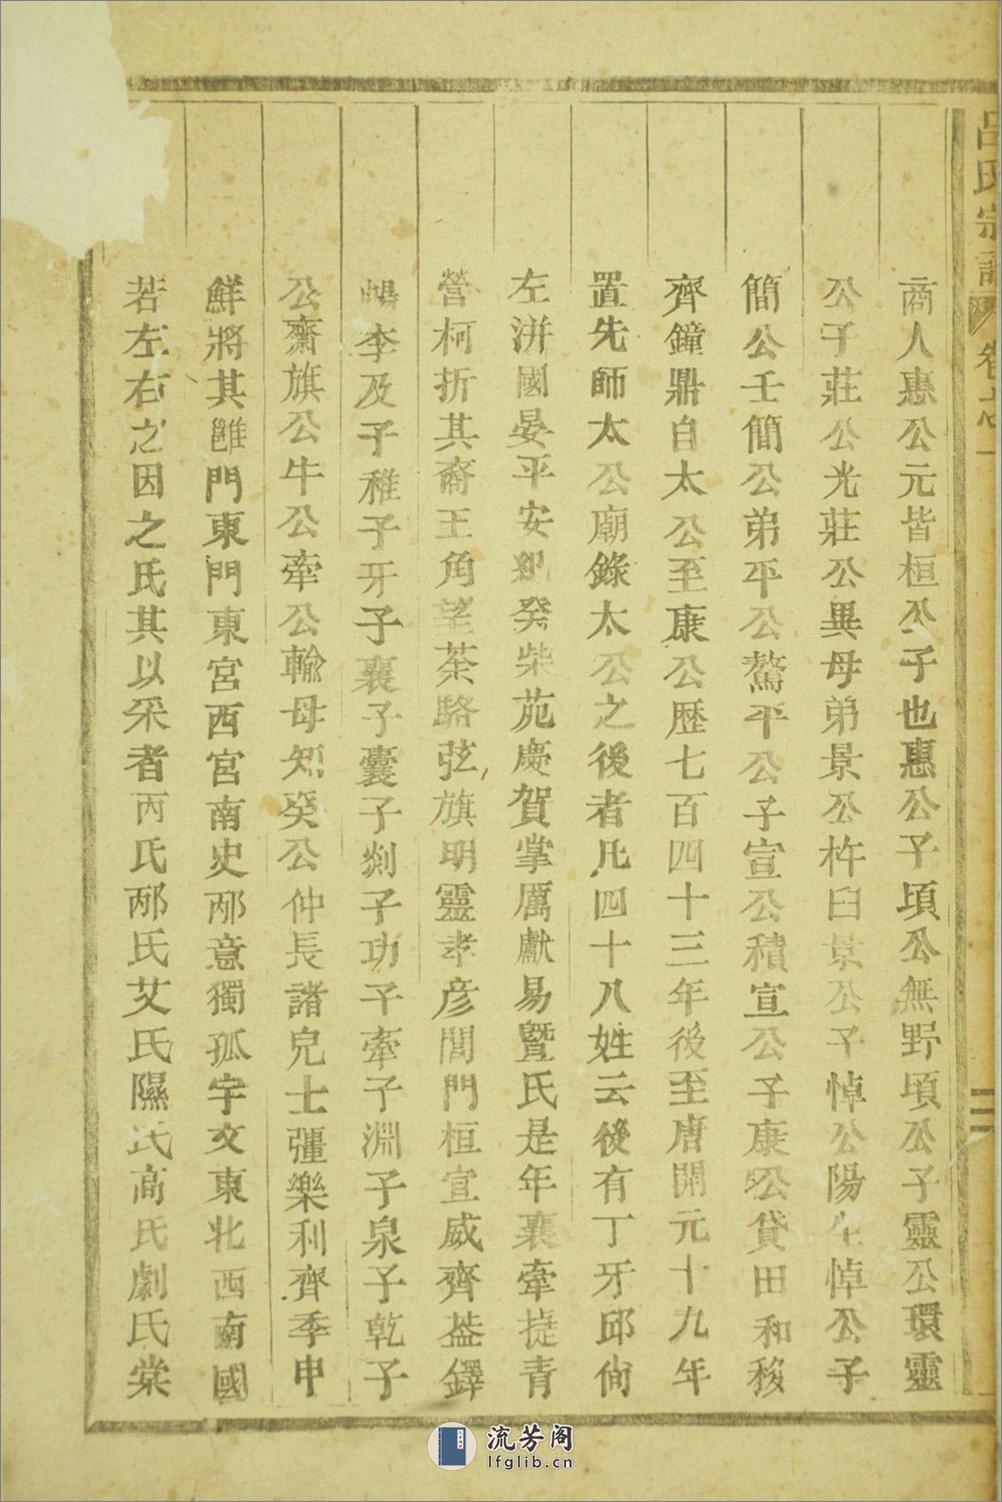 呂氏宗譜 卷之一
商人惠公元皆桓公子也惠公子頃公無野頃公子靈公環靈
公子莊公光莊公異母弟景公杵臼景公子悼公陽生悼公子
簡公壬簡公弟平公驁平公子宣公積宣公子康公貸田和移
齊鐘鼎自太公至康公歷七百四十三年後至唐開元十九年
置先師太公廟錄太公之後者凡四十八姓云後有丁牙邱尙
左洴國晏平安紀癸柴苑慶賀掌厲獻易暨氏是年襄牽㨗青
營柯折其裔王角望茶駱弦旗明靈孝彥閭門桓宣威齊葢鐸
暢李及子稚子牙子襄子囊子剡子功子牽子淵子泉子乾子
公齋旗公牛公牽公輸母知癸公仲長諸兒士彊樂利齊季申
鮮將其雝門東門東宮西宮南史邴意獨孤宇文東北西南國
若左右之因之氏其以采者丙氏邴氏艾氏隰氏高氏劇氏棠
流芳阁
lfglib.cn